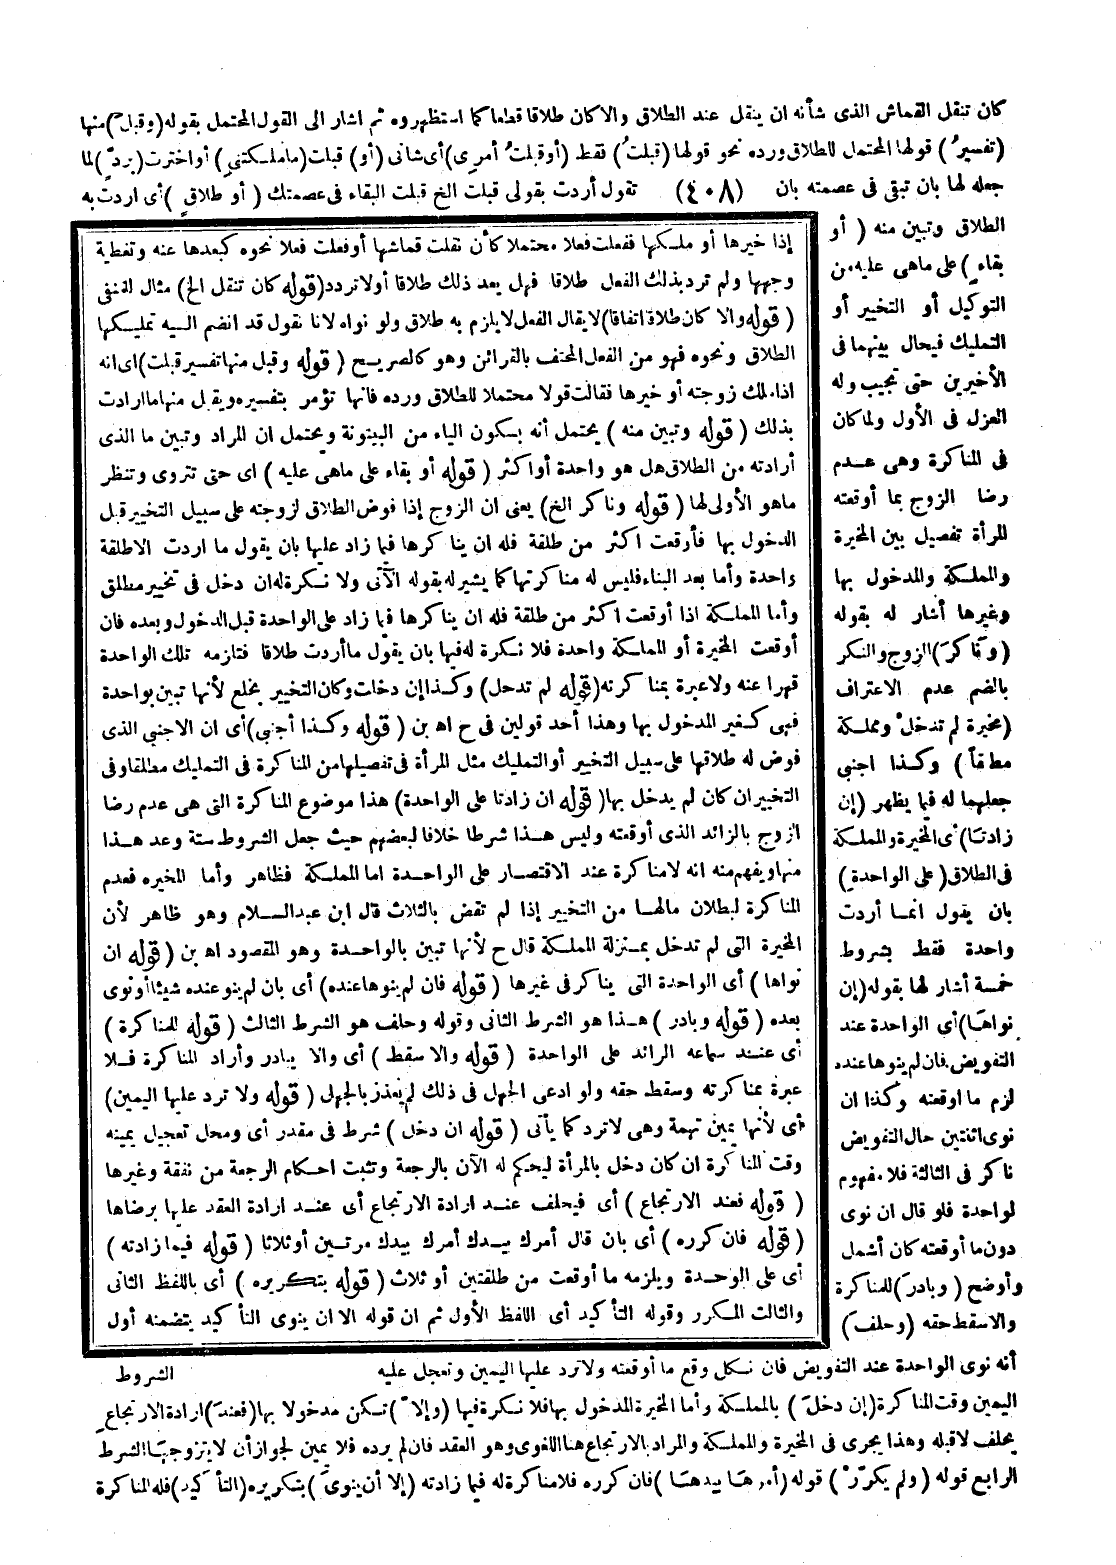 كان تنقل القماش الذى شأنه ان ينقل عند الطلاق والا كان طلاقا قطعا كما استظهروه ثم اشار الى القول المحتمل بقوله (وقبل) منها
(تفسير) قولها المحتمل للطلاق ورده نحو قولها (قبلت) فقط (أو قبلت أمرى) أى شانى (أو) قبلت (ما ملكتنى) أو اخترت (برد) لما
جعله لها بان تبقى فى عصمته بان (٤٠٨) تقول أردت بقولى قبلت الخ قبلت البقاء فى عصمتك (أو طلاق) أى اردت به
الطلاق وتبين منه (أو
بقاء) على ماهى عليه من
التوكيل أو التخيير أو
التمليك فيحال بينهما فى
الأخيرين حتى تجيب وله
العزل فى الأول ولما كان
فى المناكرة وهى عدم
رضا الزوج بما أوقعته
المرأة تفصيل بين المخيرة
والمملكة والمدخول بها
وغيرها أشار له بقوله
(وناكر) الزوج والنكر
بالضم عدم الاعتراف
(مخيرة لم تدخل ومملكة
مطلقا) وكذا اجنبى
جعلهما له فيما يظهر (إن
زادتا) أى المخيرة والمملكة
فى الطلاق (على الواحدة)
بان يقول انما أردت
واحدة فقط بشروط
خمسة أشار لها بقوله (إن
نواها) أى الواحدة عند
التفويض فان لم ينوها عنده
لزم ما اوقعته وكذا ان
نوى اثنتين حال التفويض
ناكر فى الثالثة فلا مفهوم
لواحدة فلو قال ان نوى
دون ما أوقعته كان أشمل
وأوضح (وبادر) للمناكرة
والا سقط حقه (وحلف)
أنه نوى الواحدة عند التفويض فان نكل وقع ما أوقعته ولا ترد عليها اليمين وتعجل عليه
اليمين وقت المناكرة (إن دخل) بالمملكة وأما المخيرة المدخول بها فلا نكرة فيها (وإلا) تكن مدخولا بها (فعند) ارادة الارتجاع
يحلف لا قبله وهذا يجرى فى المخيرة والمملكة والمراد بالارتجاع هنا اللغوى وهو العقد فان لم يرده فلا يمين لجواز أن لا يتزوجها الشرط
الرابع قوله (ولم يكرر) قوله (أمرها بيدها) فان كرره فلا مناكرة له فيما زادته (إلا أن ينوى) بتكريره (التأكيد) فله المناكرة
إذا خيرها أو ملكها ففعلت فعلا محتملا كأن نقلت قماشها أو فعلت فعلا نحوه كبعدها عنه وتغطية
وجهها ولم ترد بذلك الفعل طلاقا فهل يعد ذلك طلاقا أولا تردد (قوله كان تنقل الخ) مثال للمنفى
(قوله والا كان طلاقا اتفاقا) لا يقال الفعل لا يلزم به طلاق ولو نواه لانا نقول قد انضم اليه تمليكها
الطلاق ونحوه فهو من الفعل المحتف بالقرائن وهو كالصريح (قوله وقبل منها تفسير قبلت) اى انه
اذا ملك زوجته أو خيرها فقالت قولا محتملا للطلاق ورده فانها تؤمر بتفسيره ويقبل منها ما ارادت
بذلك (قوله وتبين منه) يحتمل أنه بسكون الياء من البينونة ويحتمل ان المراد وتبين ما الذى
أرادته من الطلاق هل هو واحدة أو اكثر (قوله أو بقاء على ماهى عليه) اى حتى تتروى وتنظر
ماهو الأولى لها (قوله وناكر الخ) يعنى ان الزوج إذا فوض الطلاق لزوجته على سبيل التخيير قبل
الدخول بها فأوقعت اكثر من طلقة فله ان يناكرها فيما زاد عليها بان يقول ما اردت الا طلقة
واحدة وأما بعد البناء فليس له مناكرتها كما يشير له بقوله الآتى ولا نكرة له ان دخل فى تخيير مطلق
وأما المملكة اذا أوقعت اكثر من طلقة فله ان يناكرها فيما زاد على الواحدة قبل الدخول وبعده فان
أوقعت المخيرة أو المملكة واحدة فلا نكرة له فيها بان يقول ما أردت طلاقا فتلزمه تلك الواحدة
قهرا عنه ولا عبرة بمناكرته (قوله لم تدخل) وكذا إن دخلت وكان التخيير بخلع لأنها تبين بواحدة
فهى كغير المدخول بها وهذا أحد قولين فى ح اه بن (قوله وكذا أجنبى) أى ان الاجنبى الذى
فوض له طلاقها على سبيل التخيير أو التمليك مثل المرأة فى تفصيلها من المناكرة فى التمليك مطلقا وفى
التخيير ان كان لم يدخل بها (قوله ان زادتا على الواحدة) هذا موضوع المناكرة التى هى عدم رضا
الزوج بالزائد الذى أوقعته وليس هذا شرطا خلافا لبعضهم حيث جعل الشروط ستة وعد هذا
منها ويفهم منه انه لا مناكرة عند الاقتصار على الواحدة اما المملكة فظاهر وأما المخيره فعدم
المناكرة لبطلان مالها من التخيير إذا لم تقض بالثلاث قال ابن عبد السلام وهو ظاهر لأن
المخيرة التى لم تدخل بمنزلة المملكة قال ح لأنها تبين بالواحدة وهو المقصود اه بن (قوله ان
نواها) أى الواحدة التى يناكر فى غيرها (قوله فان لم ينوها عنده) أى بان لم ينو عنده شيئا أو نوى
بعده (قوله وبادر) هذا هو الشرط الثانى وقوله وحلف هو الشرط الثالث (قوله للمناكرة)
أى عند سماعه الزائد على الواحدة (قوله والا سقط) أى والا يبادر وأراد المناكرة فلا
عبرة بمناكرته وسقط حقه ولو ادعى الجهل فى ذلك لم يعذر بالجهل (قوله ولا ترد عليها اليمين)
أى لأنها يمين تهمة وهى لا ترد كما يأتى (قوله ان دخل) شرط فى مقدر أى ومحل تعجيل يمينه
وقت المناكرة ان كان دخل بالمرأة ليحكم له الآن بالرجعة وتثبت احكام الرجعة من نفقة وغيرها
(قوله فعند الارتجاع) أى فيحلف عند ارادة الارتجاع أى عند ارادة العقد عليها برضاها
(قوله فان كرره) أى بان قال أمرك بيدك أمرك بيدك مرتين أو ثلاثا (قوله فيما زادته)
أى على الوحدة ويلزمه ما أوقعت من طلقتين أو ثلاث (قوله بتكريره) أى باللفظ الثانى
والثالث المكرر وقوله التأكيد أى اللفظ الأول ثم ان قوله الا ان ينوى التأكيد يتضمنه أول
الشروط